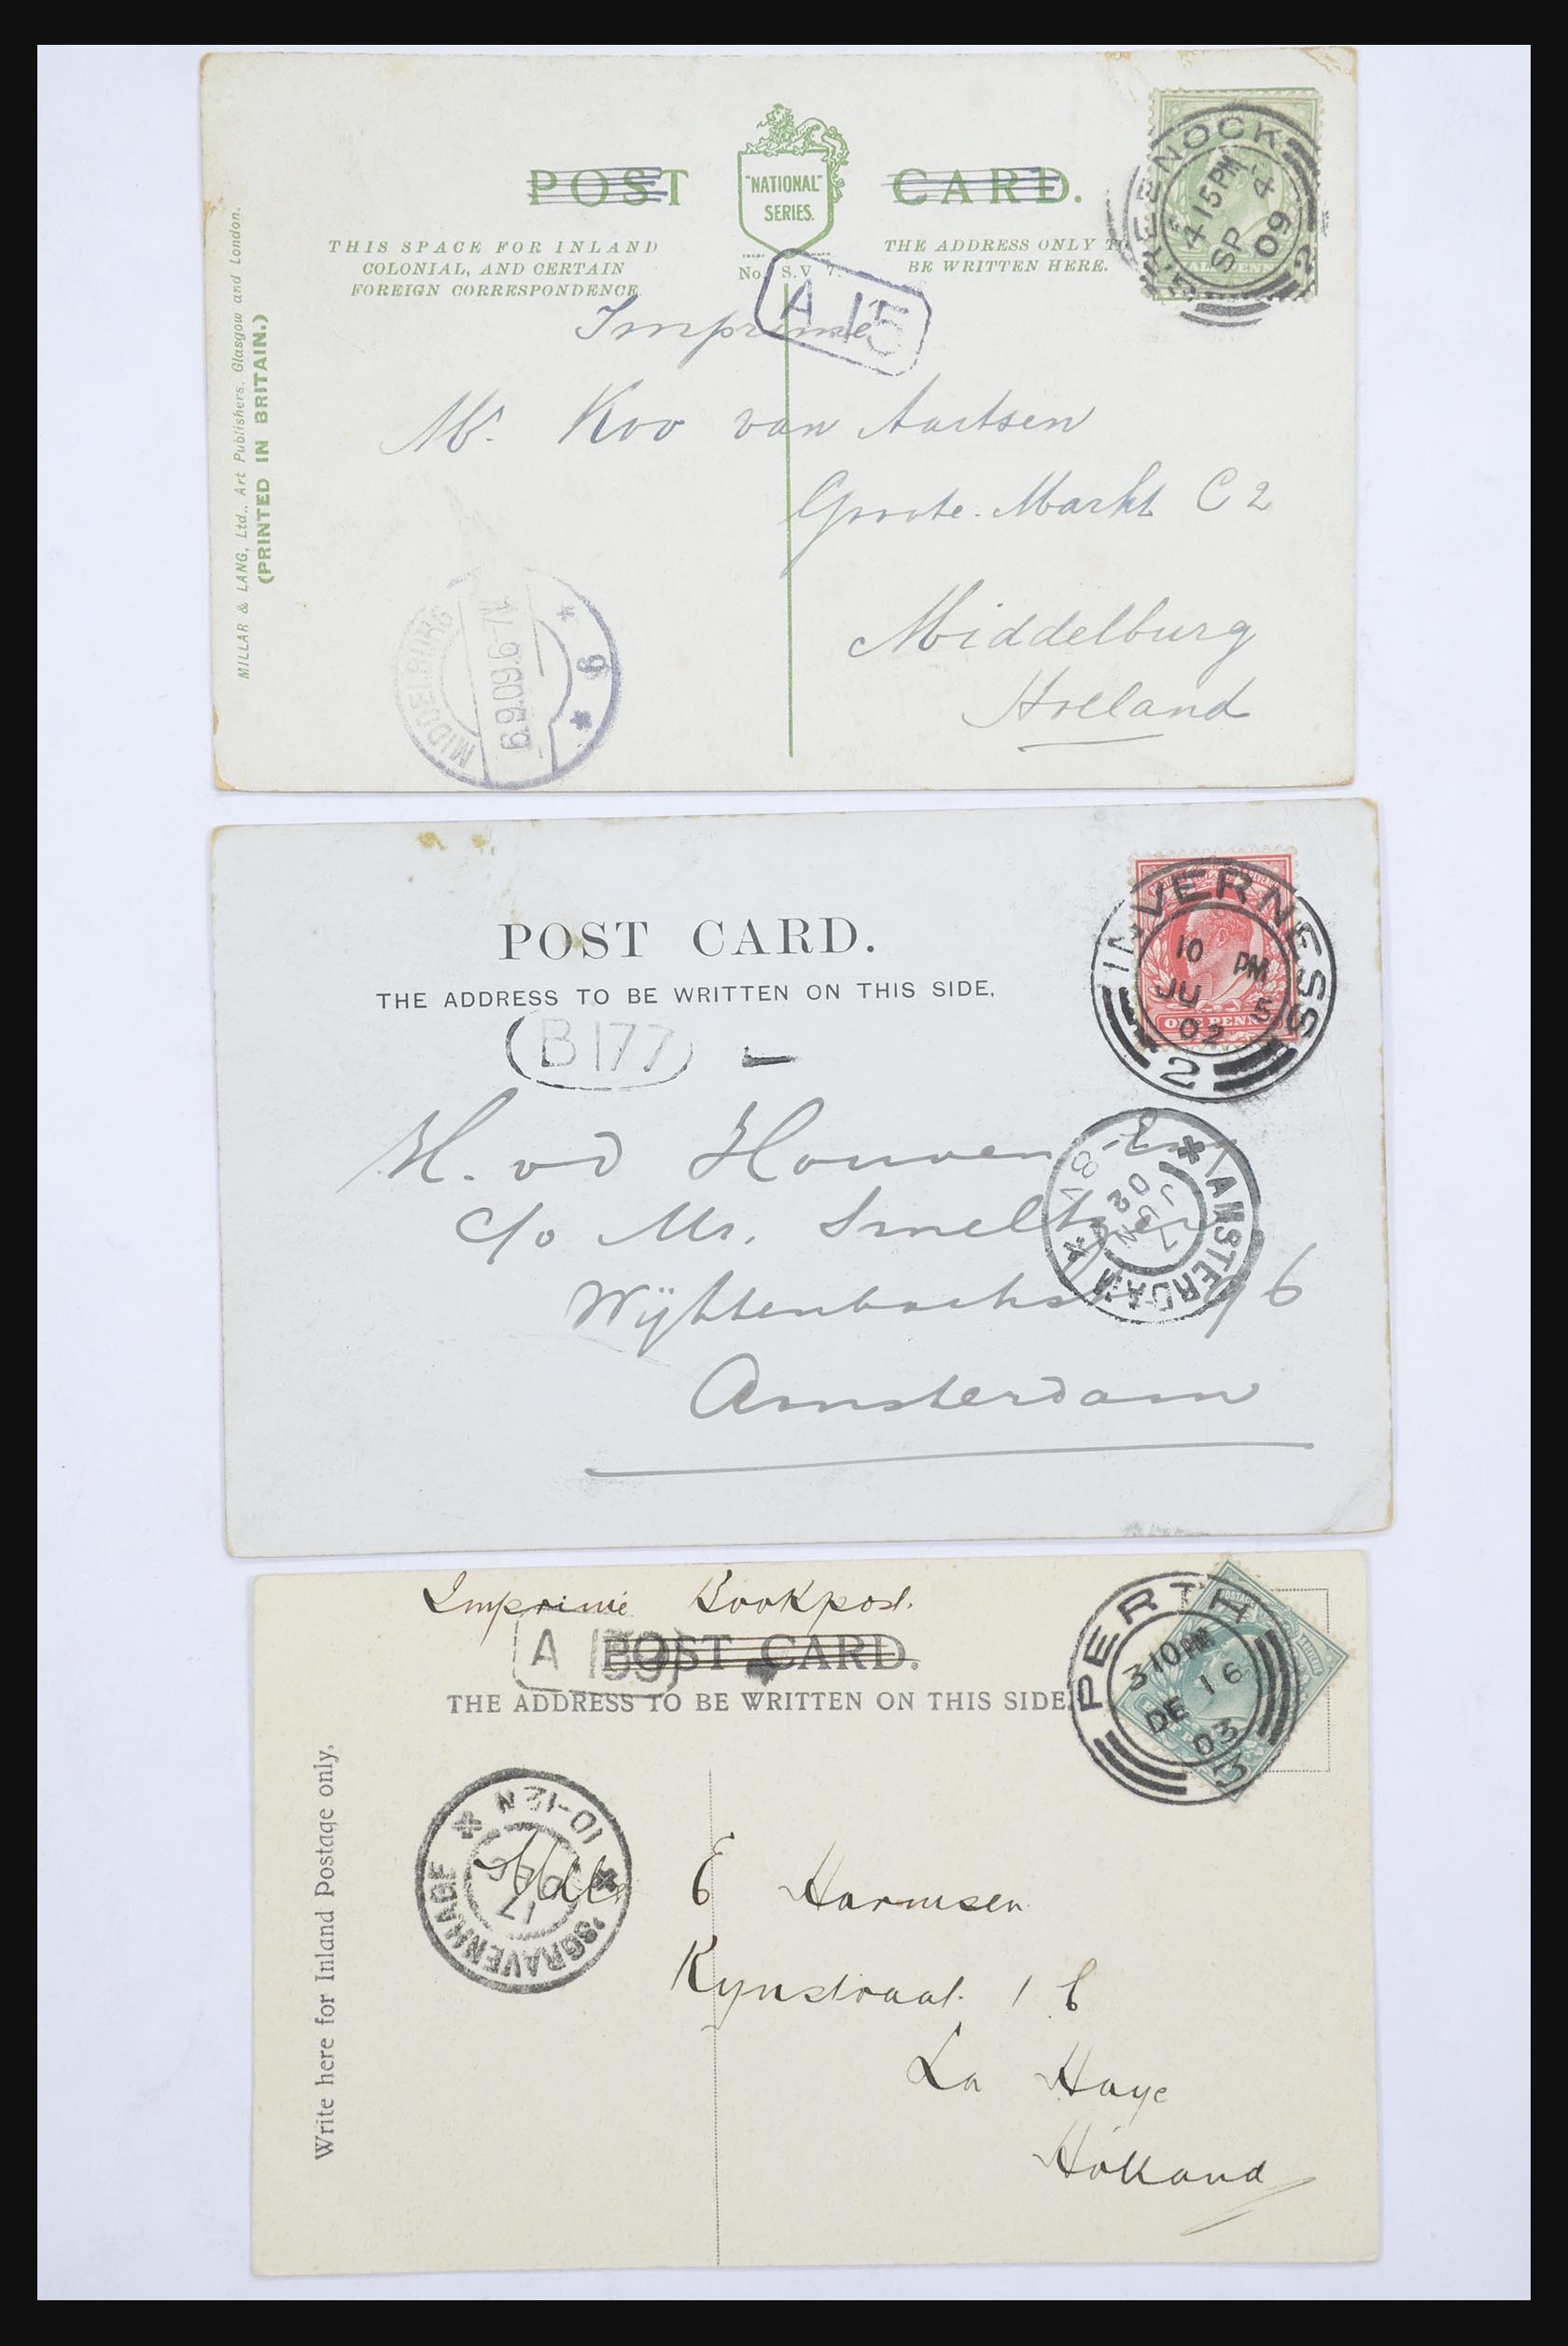 POST CARD.
"NATIONAL"
SERIES.
THIS SPACE FOR INLAND
COLONIAL, AND CERTAIN
FOREIGN CORRESPONDENCE.
THE ADDRESS ONLY TO
BE WRITTEN HERE.
No. S.V 7.
GREENOCK
4 15 PM
SP 4
09
2
A 15
Imprimé
Mr. Koo van Aartsen
Groote. Markt C 2
Middelburg
Holland
MIDDELBURG
6.9.09.6-7V
* 6 *
MILLAR & LANG, Ltd., Art Publishers, Glasgow and London.
(PRINTED IN BRITAIN.)
POST CARD.
THE ADDRESS TO BE WRITTEN ON THIS SIDE.
INVERNESS
10 PM
JU 5
02
2
ONE PENNY
B 177
H. vd Houven
c/o Mr.
96
Amsterdam
AMSTERDAM
7
JUN
02
Imprimé Bookpost.
POST CARD.
THE ADDRESS TO BE WRITTEN ON THIS SIDE.
A
PERTH
3 10 PM
DE 16
03
3
Write here for Inland Postage only.
'SGRAVENHAGE
17
DEC
10-12 N
Mdlle E Harmsen
Rynstraat 1 E
La Haye
Holland